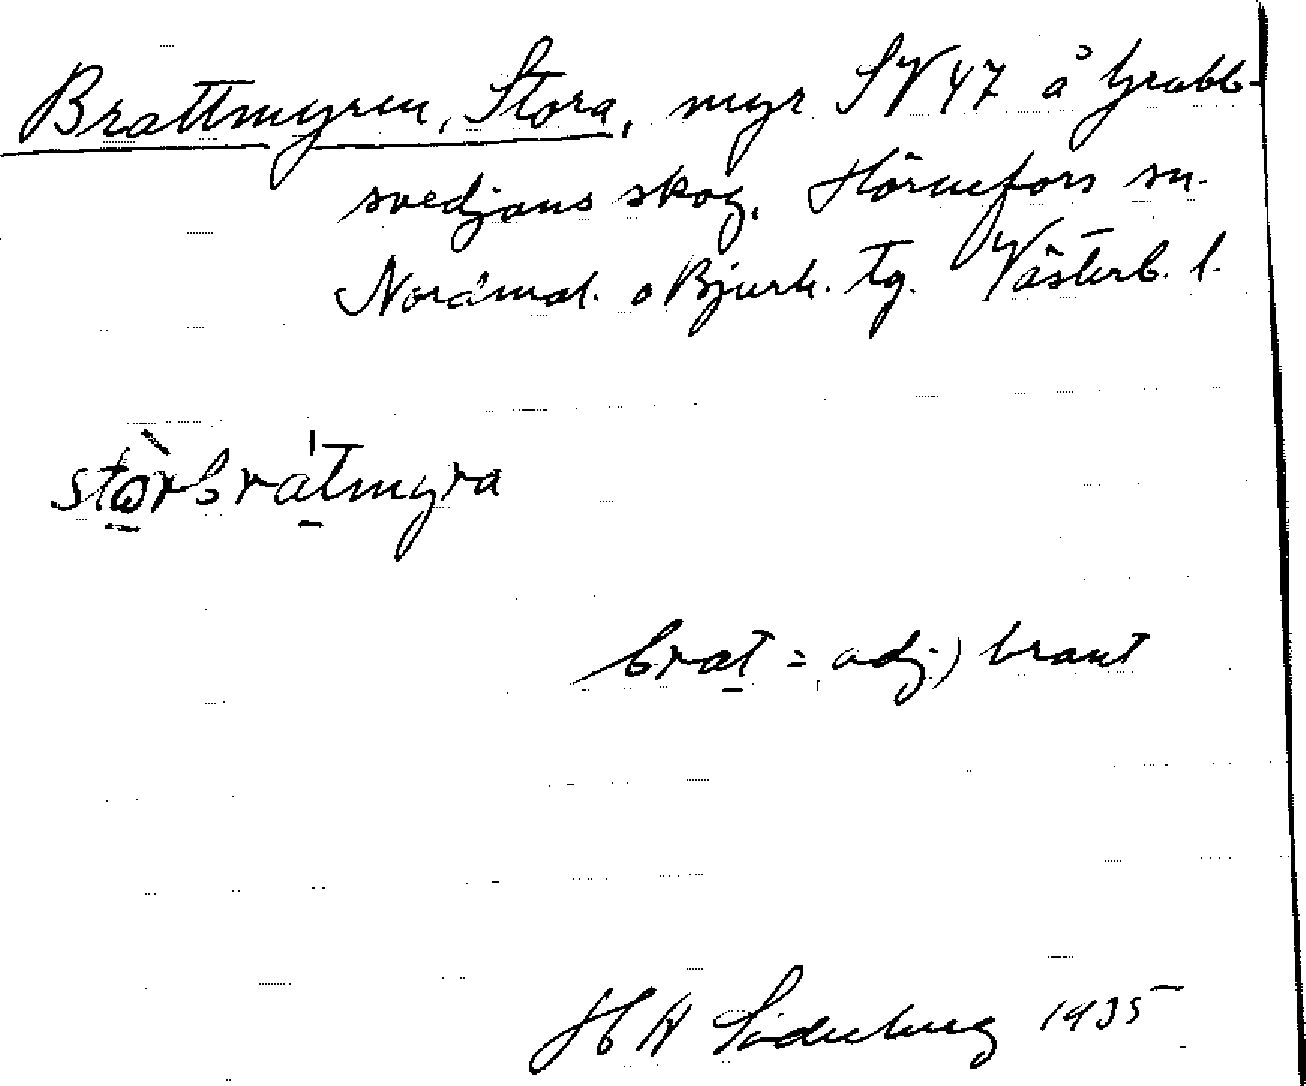 Brattmyren, Stora, myr SV 47 å Grabb-
svedjans skog, Hörnefors sn.
Nordmal. o Bjurh. tg. Västerb. l.
stòrbrátmyra
brat = adj.) brant
H A Söderberg 1935